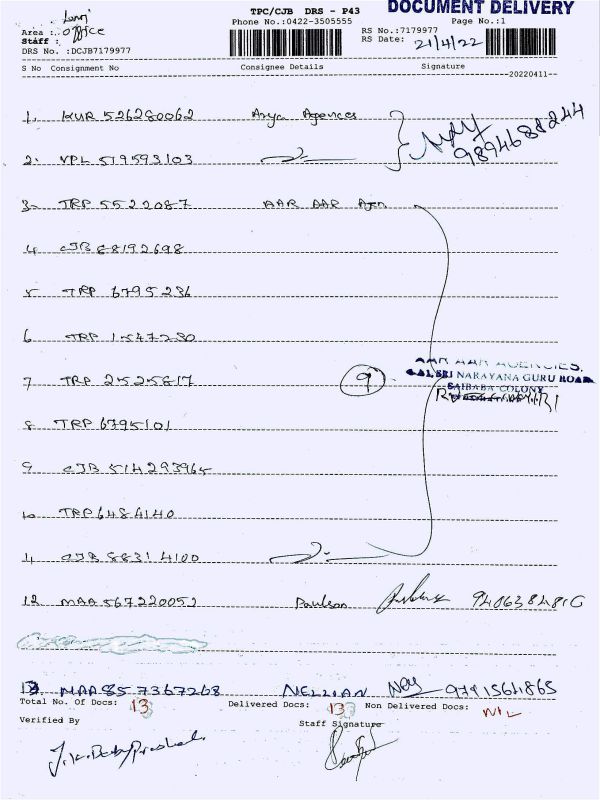 DOCUMENT DELIVERY
TPC/CJB DRS - P43
Phone No.:0422-3505555
Page No.:1
Area : office
Staff :
DRS No. :DCJB7179977
RS No.:7179977
RS Date: 21/4/22
S No Consignment No Consignee Details Signature
20220411
1. KUR 526280062 Arya Agences
9894688244
2. VPL 519593103
3. TRP 5522087 AAR AAR Agen
4 CJB 88192698
5 TRP 6795236
6 TRP 1547230
7 TRP 2525817 9
AAR AAR AGENCIES,
SRI NARAYANA GURU ROAD
SAIBABA COLONY
8 TRP 6795101
9 CJB 514293965
10 TRP 6484140
11 CJB 88314100
12 MAA 567220052 Paulson
13. MAA 857367268 NELLIAN 9791564865
Total No. Of Docs: 13 Delivered Docs: 13 Non Delivered Docs: NIL
Verified By Staff Signature